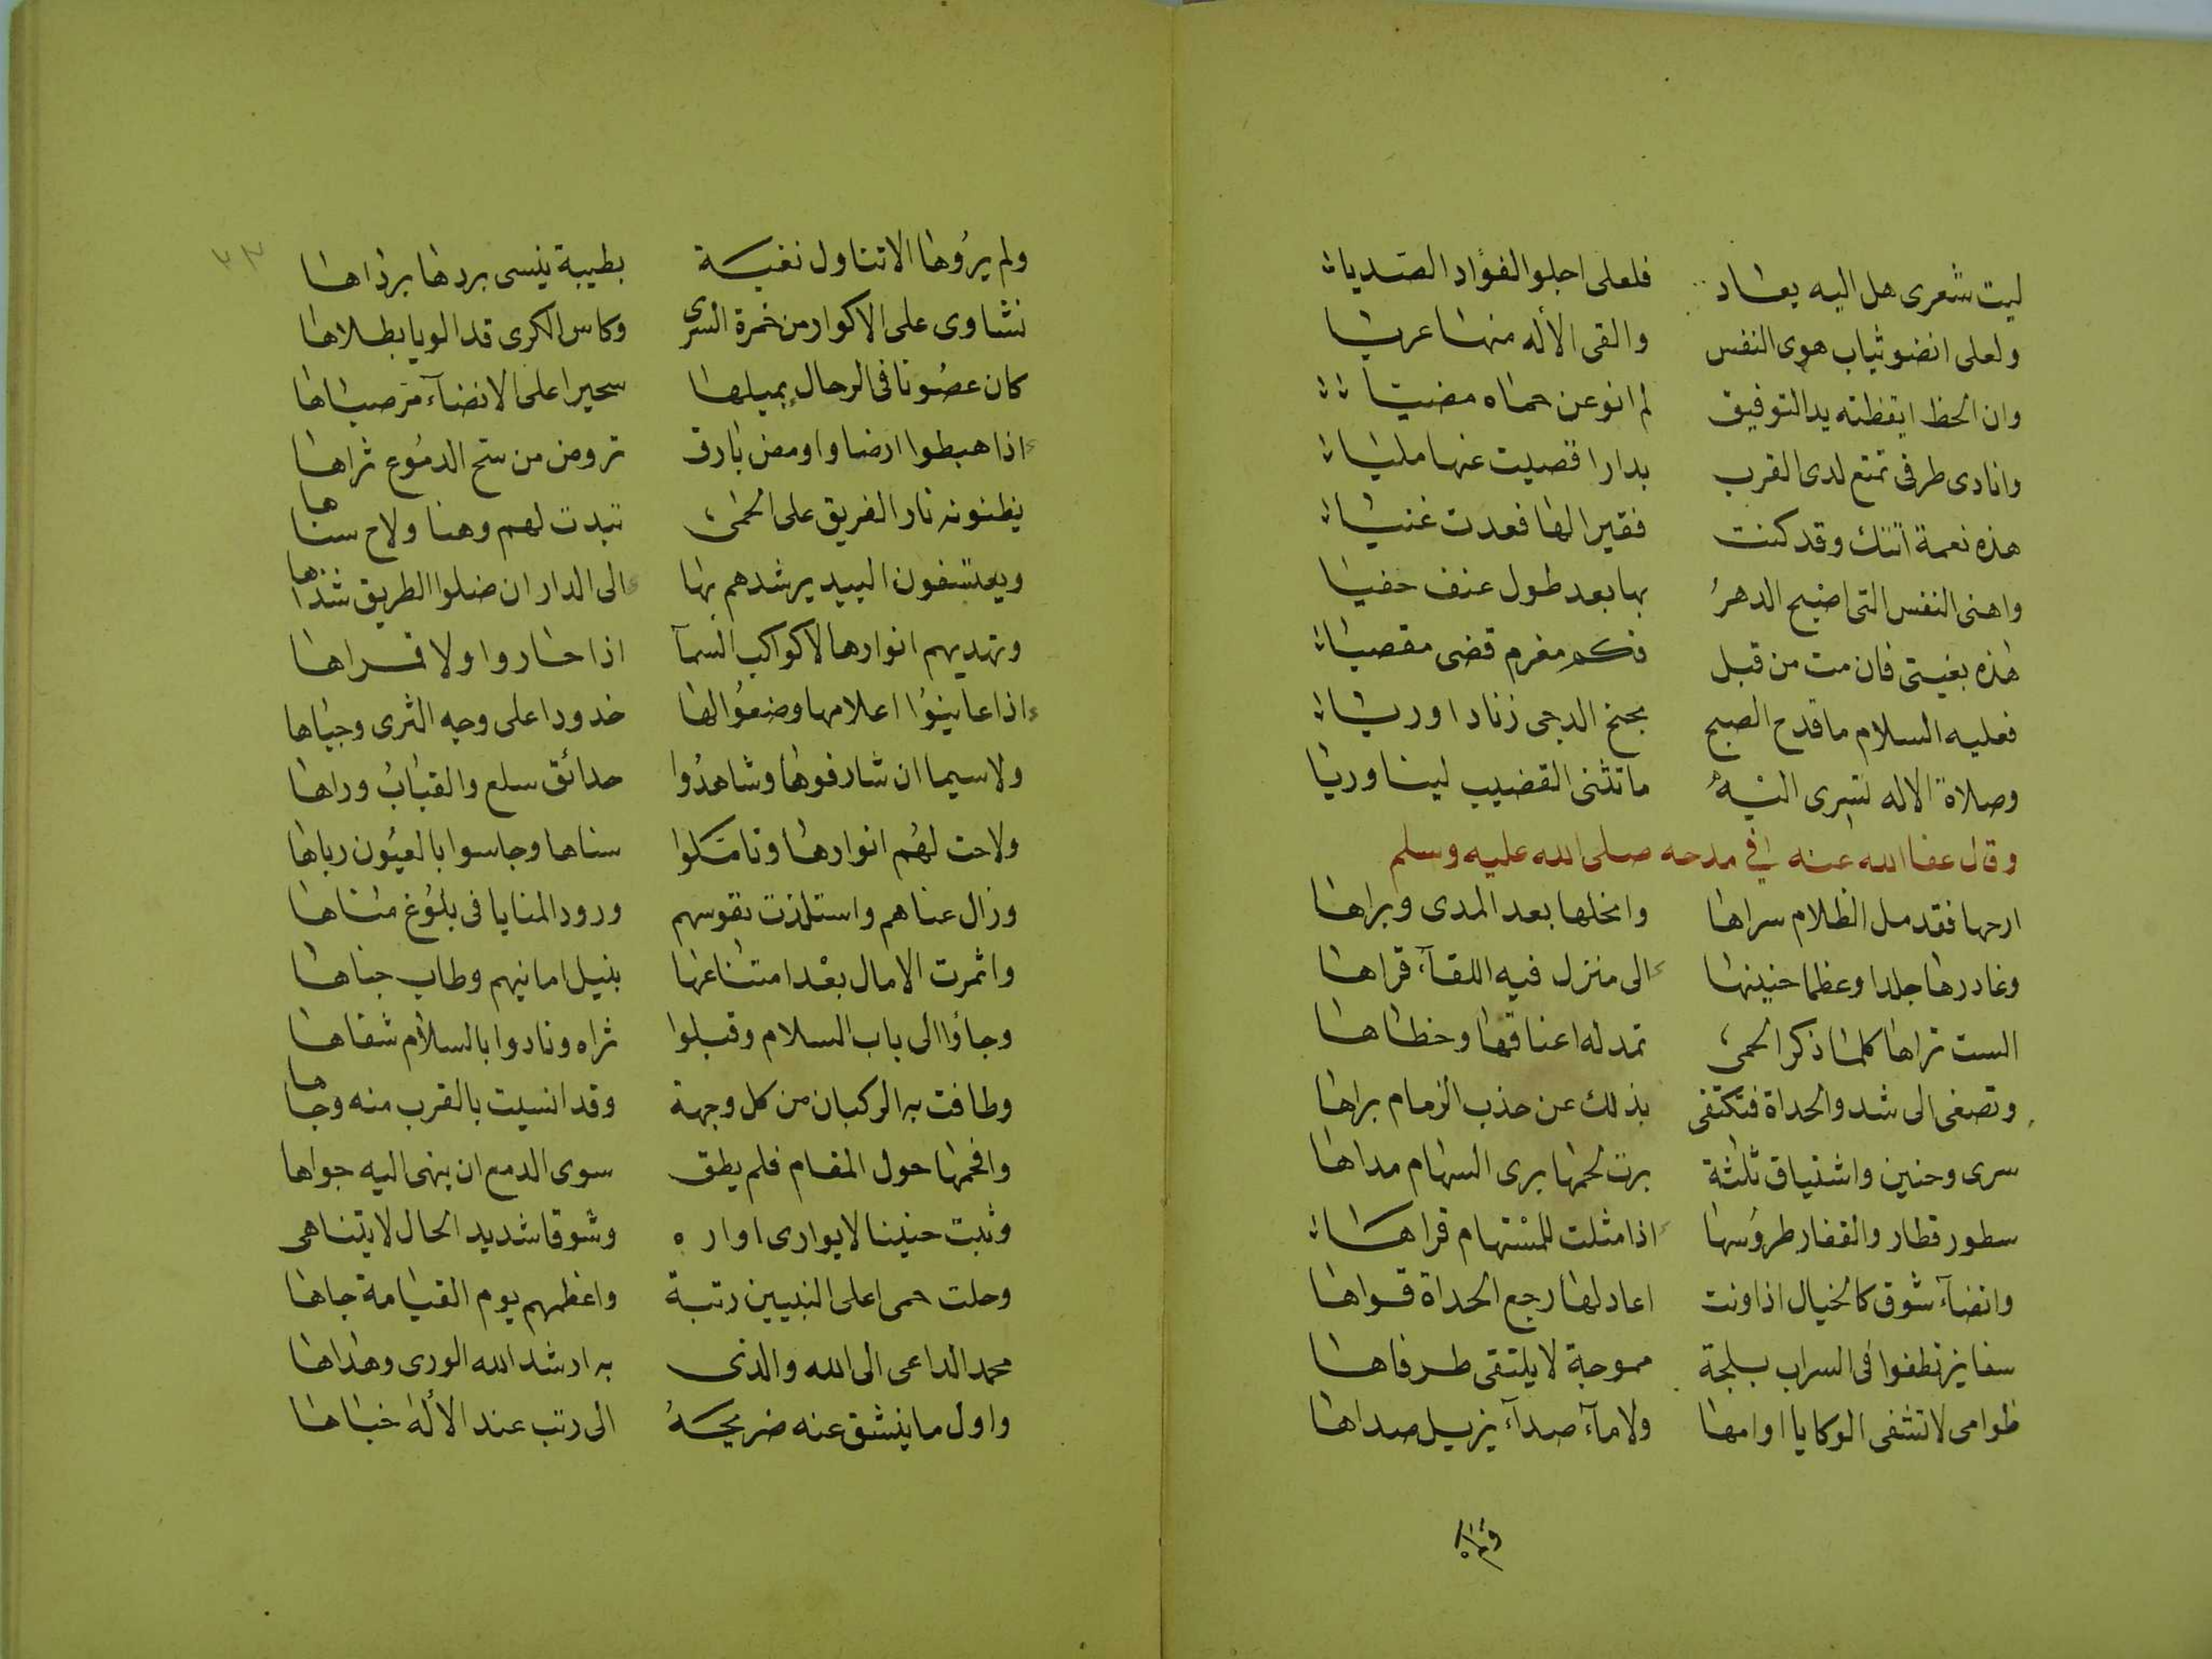 ليت شعرى هل اليه يعاد فلعلى اجلو الفؤاد الصديا
ولعلى انضو ثياب هوى النفس والقى الأله منها عريا
وان الحظ ايقظته يد التوفيق لم انو عن حماه مضيا
وانادى طرفى تمتع لدى القرب بدار اقصيت عنها مليا
هذه نعمة اتتك وقد كنت فقيرا لها فعدت غنيا
واهنى النفس التى اضبح الدهر بها بعد طول عنف حفيا
هذه بغيتى فان مت من قبل فكم مغرم قضى مقصيا
فعليه السلام ما قدح الصبح بجنح الدجى زنادا وريا
وصلاة الاله تسرى اليه ما تثنى القضيب لينا وريا
وقال عفا الله عنه فى مدحه صلى الله عليه وسلم
ارحها فقد مل الظلام سراها وانحلها بعد المدى وبراها
وغادرها جلدا وعظما حنينها الى منزل فيه اللقآء قراها
الست تراها كلما ذكر الحمى تمد له اعناقها وخطاها
وتصغى الى شد والحداة فتكتفى بذلك عن جذب الزمام براها
سرى وحنين واشتياق ثلثة برت لحمها برى السهام مداها
سطور قطار والقفار طروسها اذا مثلت للمستهام قراها
وانضآء شوق كالخيال اذا ونت اعاد لها رجع الحداة قواها
سفاين تطفوا فى السراب بلجة مموجة لا يلتقى طرفاها
ظوامى لا تشفى الركايا اوامها ولا مآء صدآء يزيل صداها
ولم يروها الا تناول نغبة بطيبة ينسى بردها برداها
نشاوى على الاكوار من خمرة السرى وكاس الكرى قد الويا بطلاها
كان غصونا فى الرحال يميلها سحيرا على الانضآء مر صباها
اذا هبطوا ارضا واومض بارق تروض من سح الدموع ثراها
يظنونه نار الفريق على الحمى تبدت لهم وهنا ولاح سناها
ويعتسفون البيد يرشدهم بها الى الدار ان ضلوا الطريق شذاها
وتهديهم انوارها لا كواكب السمآ اذا حاروا ولا قمراها
اذا عاينوا اعلامها وضعوا لها خدودا على وجه الثرى وجباها
ولا سيما ان شارفوها وشاهدوا حدائق سلع والقباب وراها
ولاحت لهم انوارها وتامّلوا سناها وجاسوا بالعيون رباها
وزال عناهم واستلذت نفوسهم ورود المنايا فى بلوغ مناها
واثمرت الامال بعد امتناعها بنيل امانيهم وطاب جناها
وجاؤا الى باب السلام وقبلوا ثراه ونادوا بالسلام شفاها
وطافت به الركبان من كل وجهة وقد انسيت بالقرب منه وجاها
وافحمها حول المقام فلم يطق سوى الدمع ان ينهى اليه جواها
وثبت حنينا لا يوارى اواره وشوقا شديد الحال لا يتناهى
وحلت حمى اعلى النبيين رتبة واعظمهم يوم القيامة جاها
محمد الداعى الى الله والذى به ارشد الله الورى وهداها
واول ما ينشق عنه ضريحه الى رتب عند الأله خباها